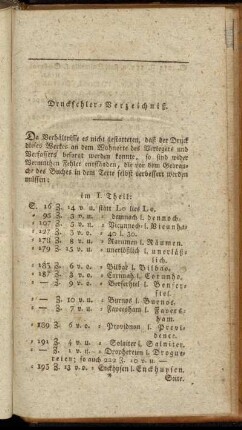 Druckfehler-Verzeichniß.
Da Verhältnisse es nicht gestatteten, daß der Druck
dieses Werks an dem Wohnorte des Verlegers und
Verfassers besorgt werden konnte, so sind wider
Vermuthen Fehler entstanden, die vor dem Gebrau-
che des Buches in dem Texte selbst verbessert werden
müssen;
im I. Theil:
S. 16 Z. 14 v. u. statt Lo lies Lo.
— 95 Z. 3 v. u. — demnach l. dennoch.
— 107 Z. v. u. — l.
— 127 Z. 3 v. u. — 40 l. 30.
— 178 Z. 8 v. u. — Raramen l. Räumen.
— 179 Z. v. u. — unerlöslich l. unerläß-
lich.
— 185 Z. 6 v. u. — Bilbar l. Bilbao.
— 187 Z. v. u. — l.
— — Z. 9 v. u. —
— — Z. 10 v. u. — Burnos l. Buenos.
— — Z. 7 v. u. — Faversham l. Favers-
ham.
— 189 Z. 6 v. u. — Providnan l. Provi-
dence.
— 191 Z. 4 v. u. — Soloiter l. Saloiter.
— — Z. 1 v. u. — Drophereien l. Drogue-
reien; so auch 222 Z. 10 v. u.
— 195 Z. 13 v. u. — Enckhysen l. Enckhuysen.
Statt